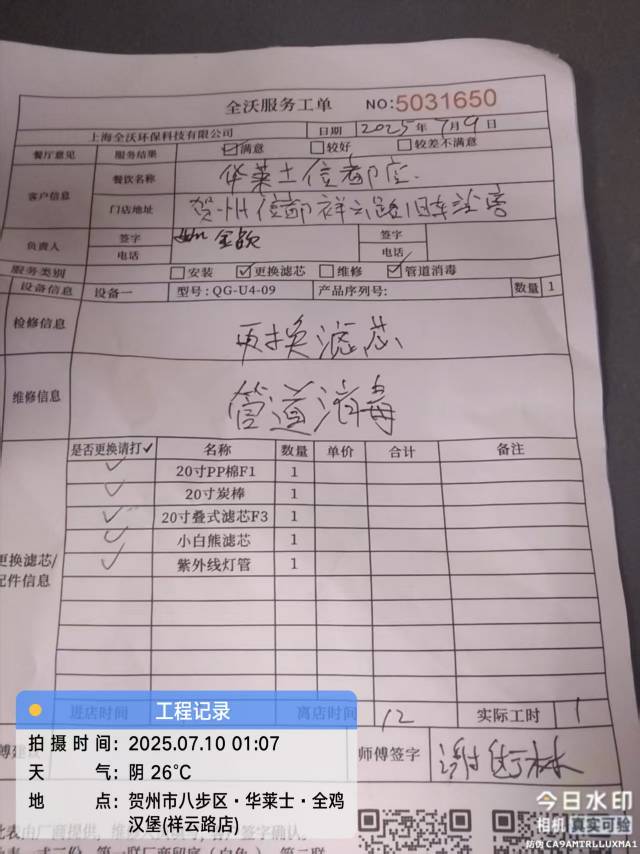 全沃服务工单 NO:5031650
上海全沃环保科技有限公司 日期 2025年7月9日
餐厅意见 服务结果 ☑满意 □较好 □较差不满意
客户信息 餐饮名称 华莱士信都店
门店地址 贺州信都祥云路旧车站旁
负责人 签字 签字
电话 电话
服务类别 □安装 ☑更换滤芯 □维修 ☑管道消毒
设备信息 设备一 型号:QG-U4-09 产品序列号: 数量 1
检修信息 更换滤芯
维修信息 管道消毒
是否更换请打✓ 名称 数量 单价 合计 备注
✓ 20寸PP棉F1 1
✓ 20寸炭棒 1
✓ 20寸叠式滤芯F3 1
✓ 小白熊滤芯 1
✓ 紫外线灯管 1
更换滤芯/
配件信息
进店时间 离店时间 12 实际工时 1
师傅签字
工程记录
拍摄时间: 2025.07.10 01:07
天气: 阴 26°C
地点: 贺州市八步区·华莱士·全鸡
汉堡(祥云路店)
今日水印
相机 真实可验
防伪 CA9AMTRLLUXMA1